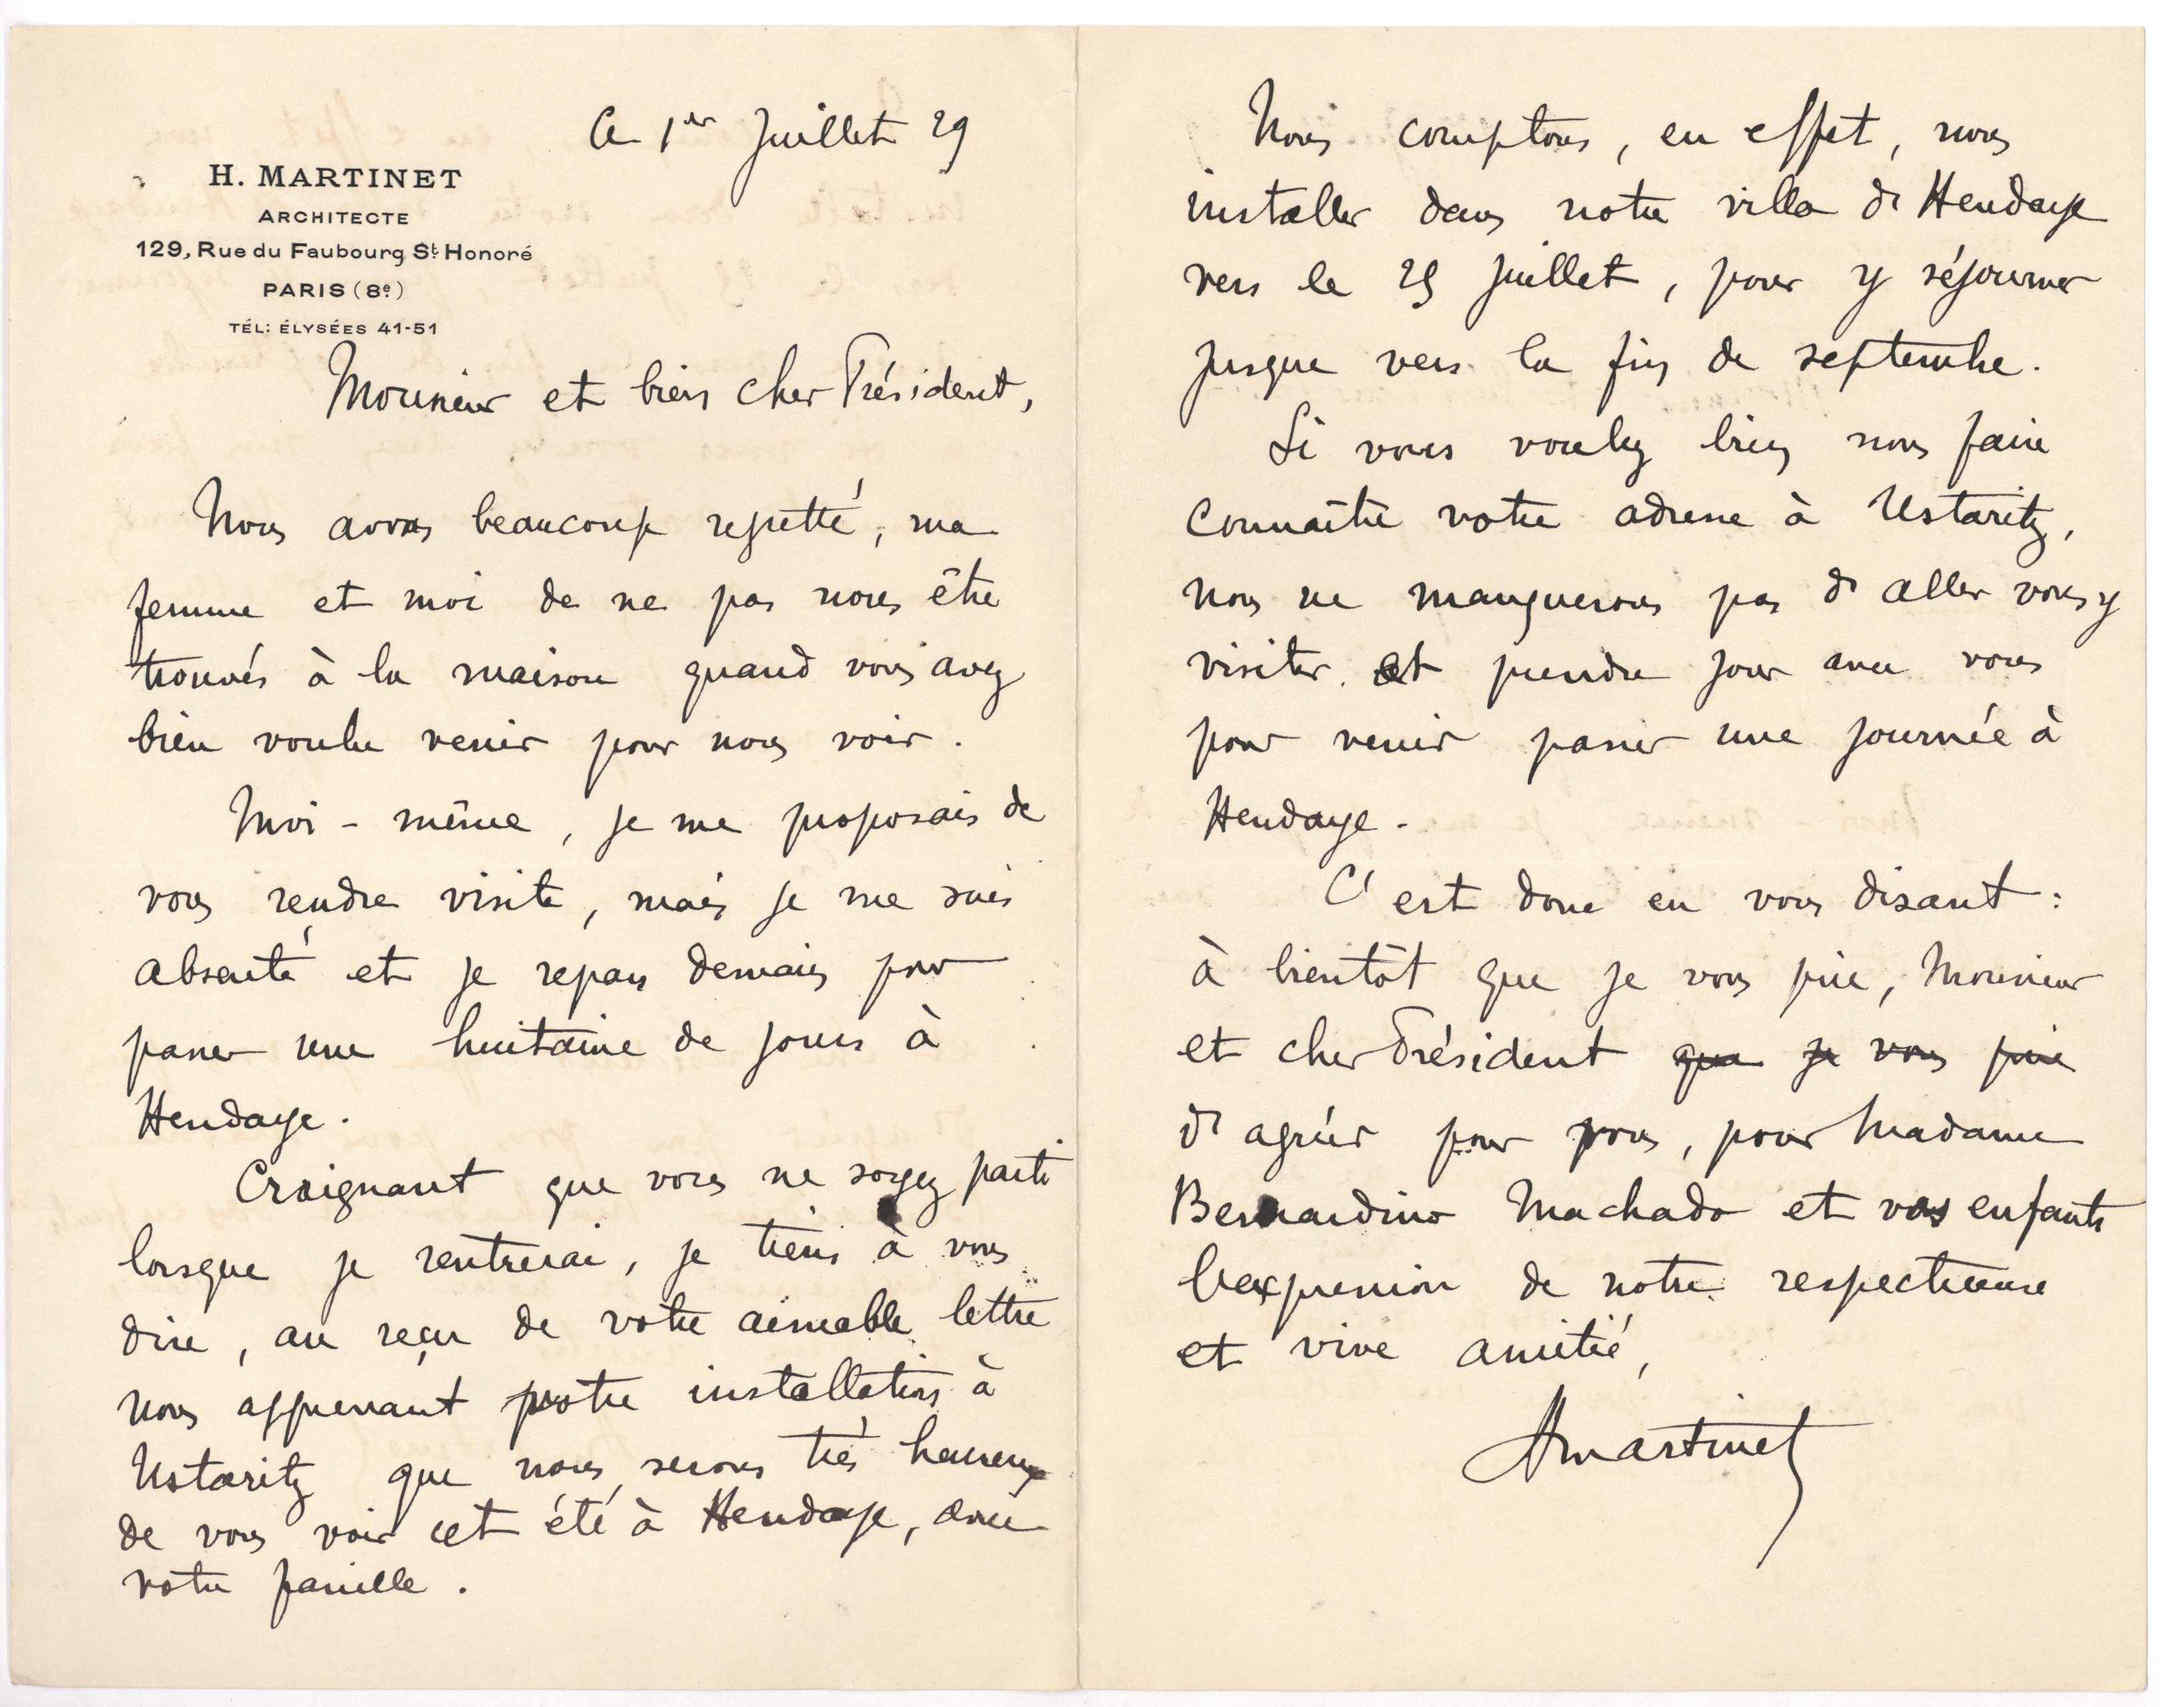 Ce 1er Juillet 29
H. MARTINET
ARCHITECTE
129, Rue du Faubourg St Honoré
PARIS (8e)
TÉL: ÉLYSÉES 41-51
Monsieur et bien cher Président,
Nous avons beaucoup regretté, ma
femme et moi de ne pas nous être
trouvés à la maison quand vous avez
bien voulu venir pour nous voir.
Moi-même, je me proposais de
vous rendre visite, mais je me suis
absenté et je repars demain pour
passer une huitaine de jours à
Hendaye.
Craignant que vous ne soyez parti
lorsque je rentrerai, je tiens à vous
dire, au reçu de votre aimable lettre
nous apprenant votre installation à
Ustaritz que nous serons très heureux
de vous voir cet été à Hendaye, avec
votre famille.
Nous comptons, en effet, nous
installer dans notre villa d'Hendaye
vers le 25 juillet, pour y séjourner
jusque vers la fin de septembre.
Si vous voulez bien nous faire
connaître votre adresse à Ustaritz,
nous ne manquerons pas d'aller vous y
visiter et prendre jour avec vous
pour venir passer une journée à
Hendaye.
C'est donc en vous disant :
à bientôt que je vous prie, Monsieur
et cher Président que je vous prie
d'agréer pour vous, pour Madame
Bernardino Machado et vos enfants
l'expression de notre respectueuse
et vive amitié,
HMartinet